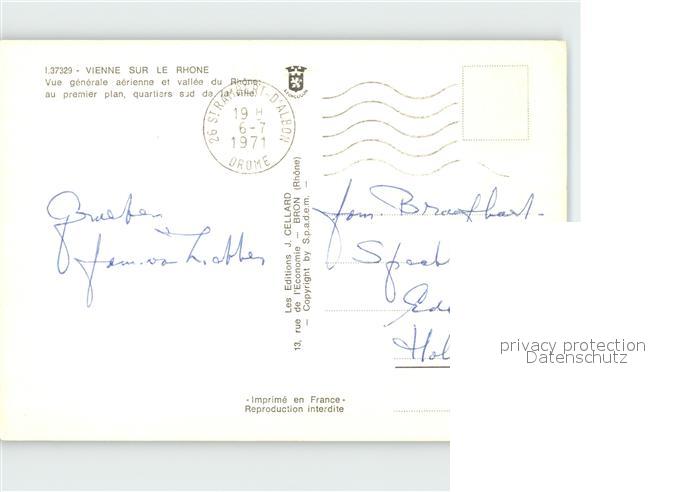 I.37329 - VIENNE SUR LE RHONE
Vue générale aérienne et vallée du Rhône;
au premier plan, quartiers sud de la ville.
26 ST RAMBERT-D'ALBON
19 H
6-7
1971
DROME
Groeten
fam. van
fam.
Hol
Les Editions J. CELLARD
13, rue de l'Economie - BRON (Rhône)
- Copyright by S.p.a.d.e.m. -
-Imprimé en France-
Reproduction interdite
privacy protection
Datenschutz